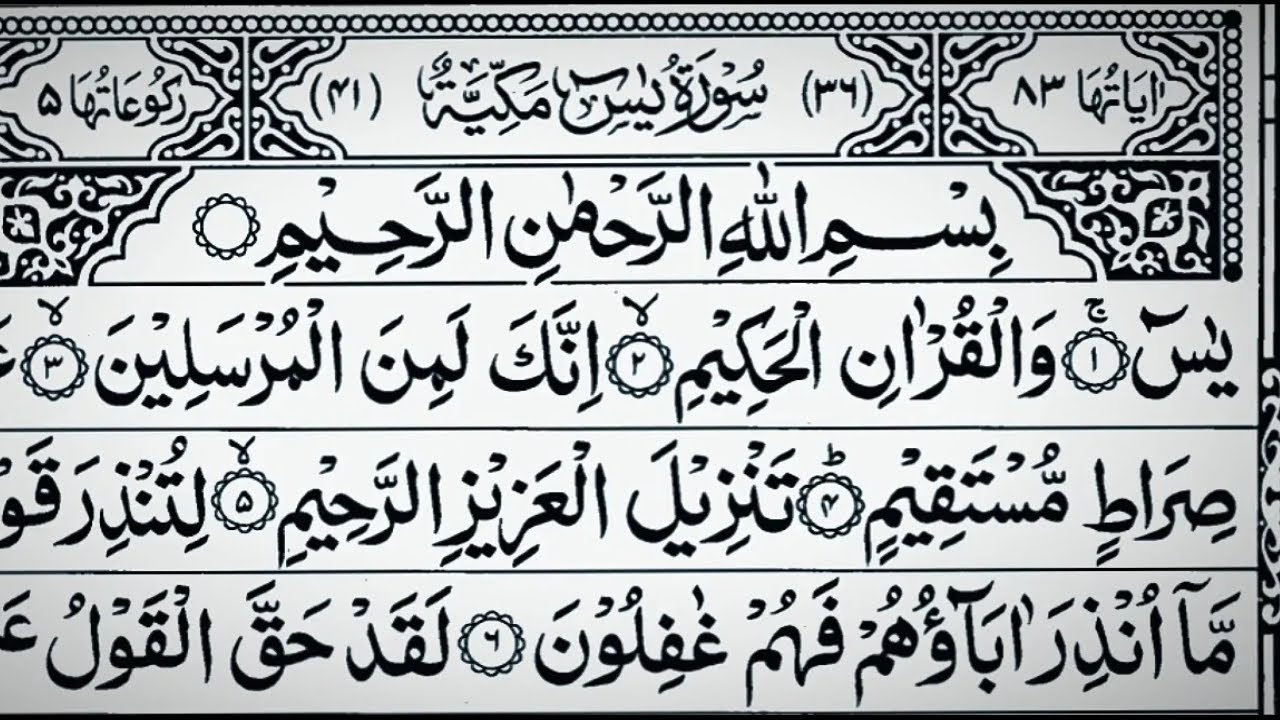 اٰيَاتُهَا ٨٣ (٣٦) سُوْرَةُ يٰسٓ مَكِّيَّةٌ (٤١) رَكُوْعَاتُهَا ٥
بِسْمِ اللّٰهِ الرَّحْمٰنِ الرَّحِيْمِ
يٰسٓ ۚ ﴿١﴾ وَالْقُرْاٰنِ الْحَكِيْمِ ۙ ﴿٢﴾ اِنَّكَ لَمِنَ الْمُرْسَلِيْنَ ۙ ﴿٣﴾
صِرَاطٍ مُّسْتَقِيْمٍ ؕ ﴿۴﴾ تَنْزِيْلَ الْعَزِيْزِ الرَّحِيْمِ ۙ ﴿۵﴾ لِتُنْذِرَ قَوْ
مَّآ اُنْذِرَ اٰبَآؤُهُمْ فَهُمْ غٰفِلُوْنَ ﴿۶﴾ لَقَدْ حَقَّ الْقَوْلُ